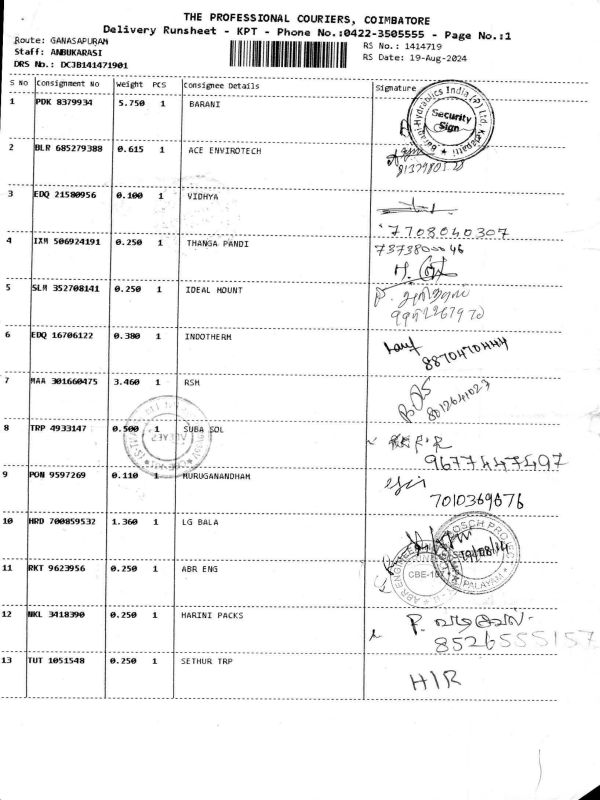 THE PROFESSIONAL COURIERS, COIMBATORE
Delivery Runsheet - KPT - Phone No.:0422-3505555 - Page No.:1
Route: GANASAPURAM
Staff: ANBUKARASI
DRS No.: DCJB141471901
RS No.: 1414719
RS Date: 19-Aug-2024
S No Consignment No Weight PCS Consignee Details Signature
1 PDK 8379934 5.750 1 BARANI
Security
Sign
2 BLR 685279388 0.615 1 ACE ENVIROTECH
3 EDQ 21580956 0.100 1 VIDHYA
7708040307
4 IXM 506924191 0.250 1 THANGA PANDI
7373800046
5 SLM 352708141 0.250 1 IDEAL MOUNT
P.
6 EDQ 16706122 0.380 1 INDOTHERM
8870470444
7 MAA 301660475 3.460 1 RSM
8012641023
8 TRP 4933147 0.500 1 SUBA SOL
9677447497
9 PON 9597269 0.110 1 MURUGANANDHAM
7010369676
10 HRD 700859532 1.360 1 LG BALA
19/08/24
11 RKT 9623956 0.250 1 ABR ENG
ABR ENGINEE
CBE-107
BOSCH PROJE
PALAYAM
12 NKL 3418390 0.250 1 HARINI PACKS
P.
8526555157
13 TUT 1051548 0.250 1 SETHUR TRP
HIR